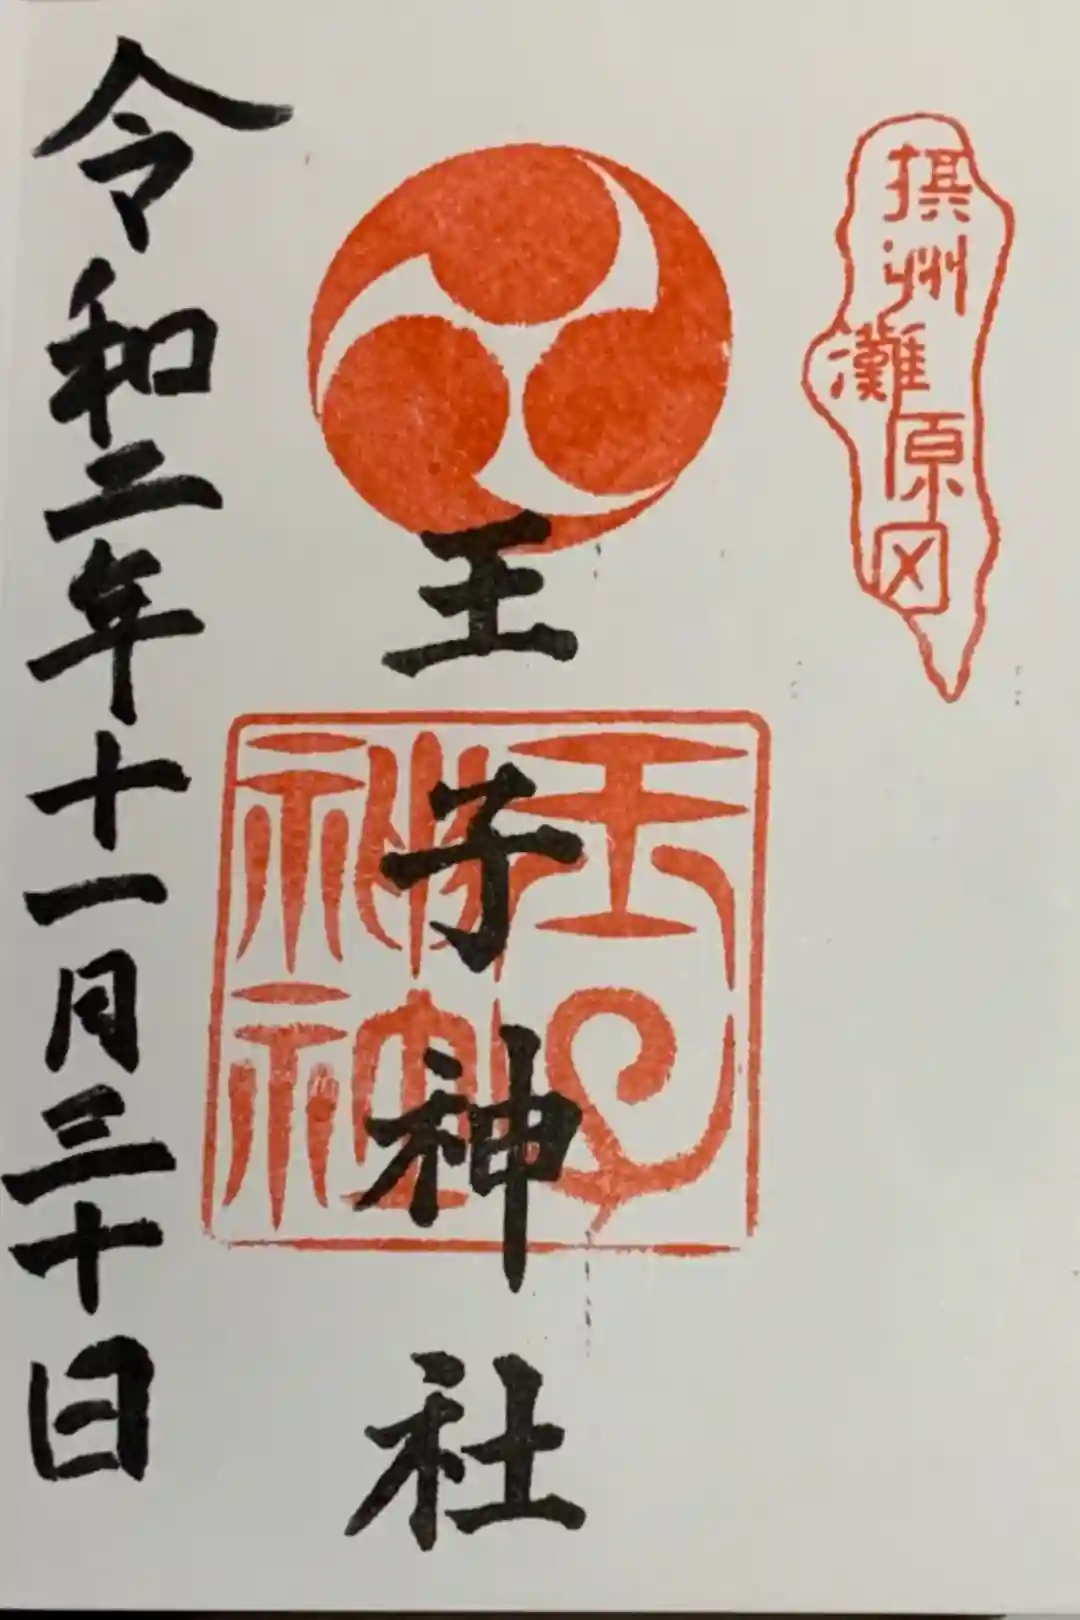 摂州灘原田
王子神社
王子神社
令和二年十一月三十日